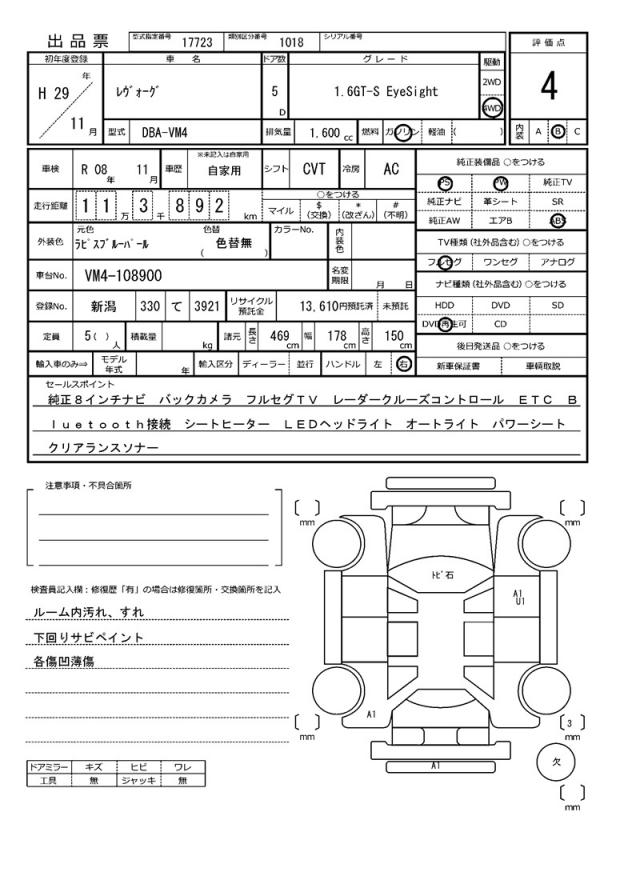 出品票
型式指定番号 17723 類別区分番号 1018 シリアル番号
評価点
4
初年度登録 車名 ドア数 グレード 駆動
H 29 年 11 月
ﾚｳﾞｫｰｸﾞ
5 D
1.6GT-S EyeSight
2WD
4WD
型式 DBA-VM4 排気量 1,600 cc 燃料 ガソリン 軽油 ( )
内装 A B C
車検 R 08 年 11 月 車歴 ※未記入は自家用 自家用 シフト CVT 冷房 AC
走行距離 1 1 万 3 千 8 9 2 km
○をつける
マイル $(交換) *(改ざん) #(不明)
外装色 元色 ﾗﾋﾟｽﾌﾞﾙｰﾊﾟｰﾙ 色替 ( 色替無 ) カラーNo. 内装色
車台No. VM4-108900 名変期限 月 日
登録No. 新潟 330 て 3921 リサイクル預託金 13,610円預託済 未預託
定員 5( )人 積載量 kg 諸元 長さ 469 cm 幅 178 cm 高さ 150 cm
輸入車のみ⇒ モデル年式 年 輸入区分 ディーラー 並行 ハンドル 左 右
純正装備品 ○をつける
PS PW 純正TV
純正ナビ 革シート SR
純正AW エアB ABS
TV種類(社外品含む) ○をつける
フルセグ ワンセグ アナログ
ナビ種類(社外品含む) ○をつける
HDD DVD SD
DVD再生可 CD
後日発送品 ○をつける
新車保証書 車輌取説
セールスポイント
純正８インチナビ バックカメラ フルセグＴＶ レーダークルーズコントロール ＥＴＣ Ｂ
ｌｕｅｔｏｏｔｈ接続 シートヒーター ＬＥＤヘッドライト オートライト パワーシート
クリアランスソナー
注意事項・不具合箇所
検査員記入欄：修復歴「有」の場合は修復箇所・交換箇所を記入
ルーム内汚れ、すれ
下回りサビペイント
各傷凹薄傷
ドアミラー キズ ヒビ ワレ
工具 無 ジャッキ 無
[ ] mm
[ ] mm
ﾄﾋﾞ石
A1
U1
A1
[ ] mm
[ 3 ] mm
A1
欠
[ ] mm